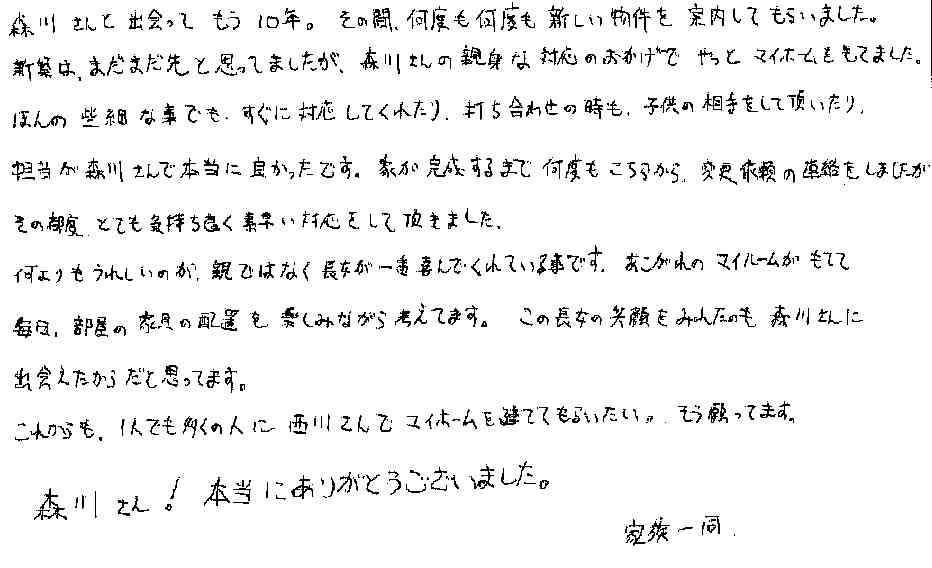 森川さんと出会ってもう10年。その間、何度も何度も新しい物件を案内してもらいました。
新築は、まだまだ先と思ってましたが、森川さんの親身な対応のおかげでやっとマイホームをもてました。
ほんの些細な事でも、すぐに対応してくれたり、打ち合わせの時も、子供の相手をして頂いたり、
担当が森川さんで本当に良かったです。家が完成するまで何度もこちらから、変更依頼の連絡をしましたが
その都度、とても気持ち良く素早い対応をして頂きました。
何よりもうれしいのが、親ではなく長女が一番喜んでくれている事です。あこがれのマイルームがもてて
毎日、部屋の家具の配置を楽しみながら考えてます。この長女の笑顔をみれたのも森川さんに
出会えたからだと思ってます。
これからも、1人でも多くの人に西川さんでマイホームを建ててもらいたい。そう願ってます。
森川さん!本当にありがとうございました。
家族一同.